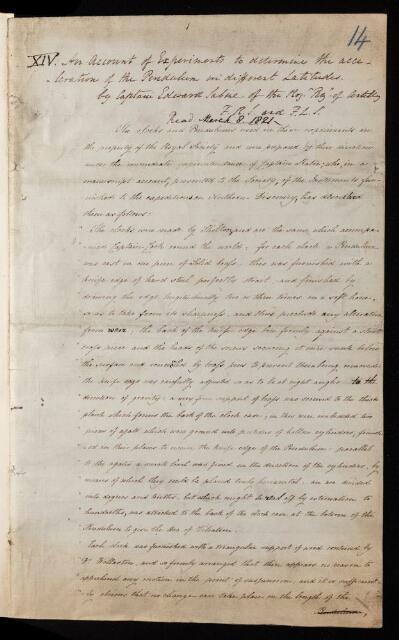 14
XIV. An Account of Experiments to determine the acce-
leration of the Pendulum in different Latitudes.
by Captain Edward Sabine of the Roy.l Reg.t of Artillery
F.R.S. and F.L.S.
Read March 8. 1821
The clocks and Pendulums used in these experiments are
the property of the Royal Society and were prepared by their direction
under the immediate superintendence of Captain Kater; who, in a
manuscript account, presented to the Society, of the Instruments fur-
nished to the expedition on Northern Discovery, has described
them as follows:
"The clocks were made by Shelton, and are the same which accompa-
nied Captain Cook round the world; for each clock a Pendulum
was cast in one piece of solid brass; this was furnished with a
knife edge of hard steel perfectly strait, and finished by
drawing the edge longitudinally two or three times on a soft hone,
so as to take from its sharpness, and thus preclude any alteration
from wear; the back of the knife edge bore firmly against a stout
cross piece and the heads of the screws securing it were sunk below
the surface and concealed by brass pins to prevent their being removed:
the knife edge was carefully adjusted so as to be at right angles to the
direction of gravity: a very firm support of brass was secured to the thick
plank which forms the back of the clock case; in this were imbedded two
pieces of agate which were ground into portions of hollow cylinders,
in their places to ensure the knife edge of the Pendulum: parallel
to the agates a small level was fixed in the direction of the cylinders, by
means of which they could be placed truly horizontal. an arc divided
into degrees and tenths, but which might be read off by estimation to
hundredths, was attached to the back of the clock case at the bottom of the
Pendulum to give the Arc of Vibration.
Each clock was furnished with a triangular support of wood contrived by
Dr Wollaston, and so firmly arranged that there appears no reason to
apprehend any motion in the point of suspension, and it is sufficient
to observe that no change can take place in the length of the
Pendulum,